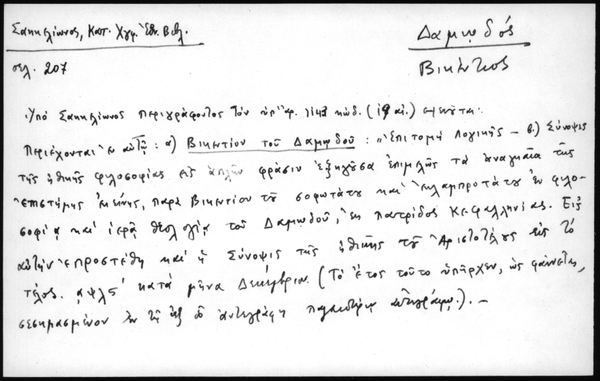 Σακκελίωνος, Κατ. Χγφ. Ἐθν. Βιβλ.
Δαμῳδός
σελ. 207
Βικέντιος
Ὑπὸ Σακκελίωνος περιγράφοντος τὸν ὑπ' ἀρ. 1143 κώδ. (ιθ αἰ.)
Περιέχονται ἐν αὐτῷ: α) Βικεντίου τοῦ Δαμῳδοῦ: "Ἐπιτομὴ Λογικῆς – β) Σύνοψις
τῆς ἠθικῆς φιλοσοφίας εἰς ἁπλῆν φράσιν ἐξηγοῦσα ἐπιμελῶς τὰ ἀναγκαῖα τῆς
ἐπιστήμης ἐκείνης, παρὰ Βικεντίου τοῦ σοφωτάτου καὶ ἐλλαμπροτάτου ἐν φιλο-
σοφίᾳ καὶ ἱερᾷ θεολογίᾳ τοῦ Δαμῳδοῦ, ἐκ πατρίδος Κεφαλληνίας. Εἰς
αὐτὴν ἐπροστέθη καὶ ἡ Σύνοψις τῆς ἠθικῆς τοῦ Ἀριστοτέλους εἰς τὸ
τέλος. ͵αψλς΄ κατὰ μῆνα Δεκέμβριον. (Τὸ ἔτος τοῦτο ὑπῆρχεν, ὡς φαίνεται,
σεσημασμένον ἐν τῷ ἐξ οὗ ἀντεγράφη παλαιοτέρῳ ἀπογράφῳ.). –